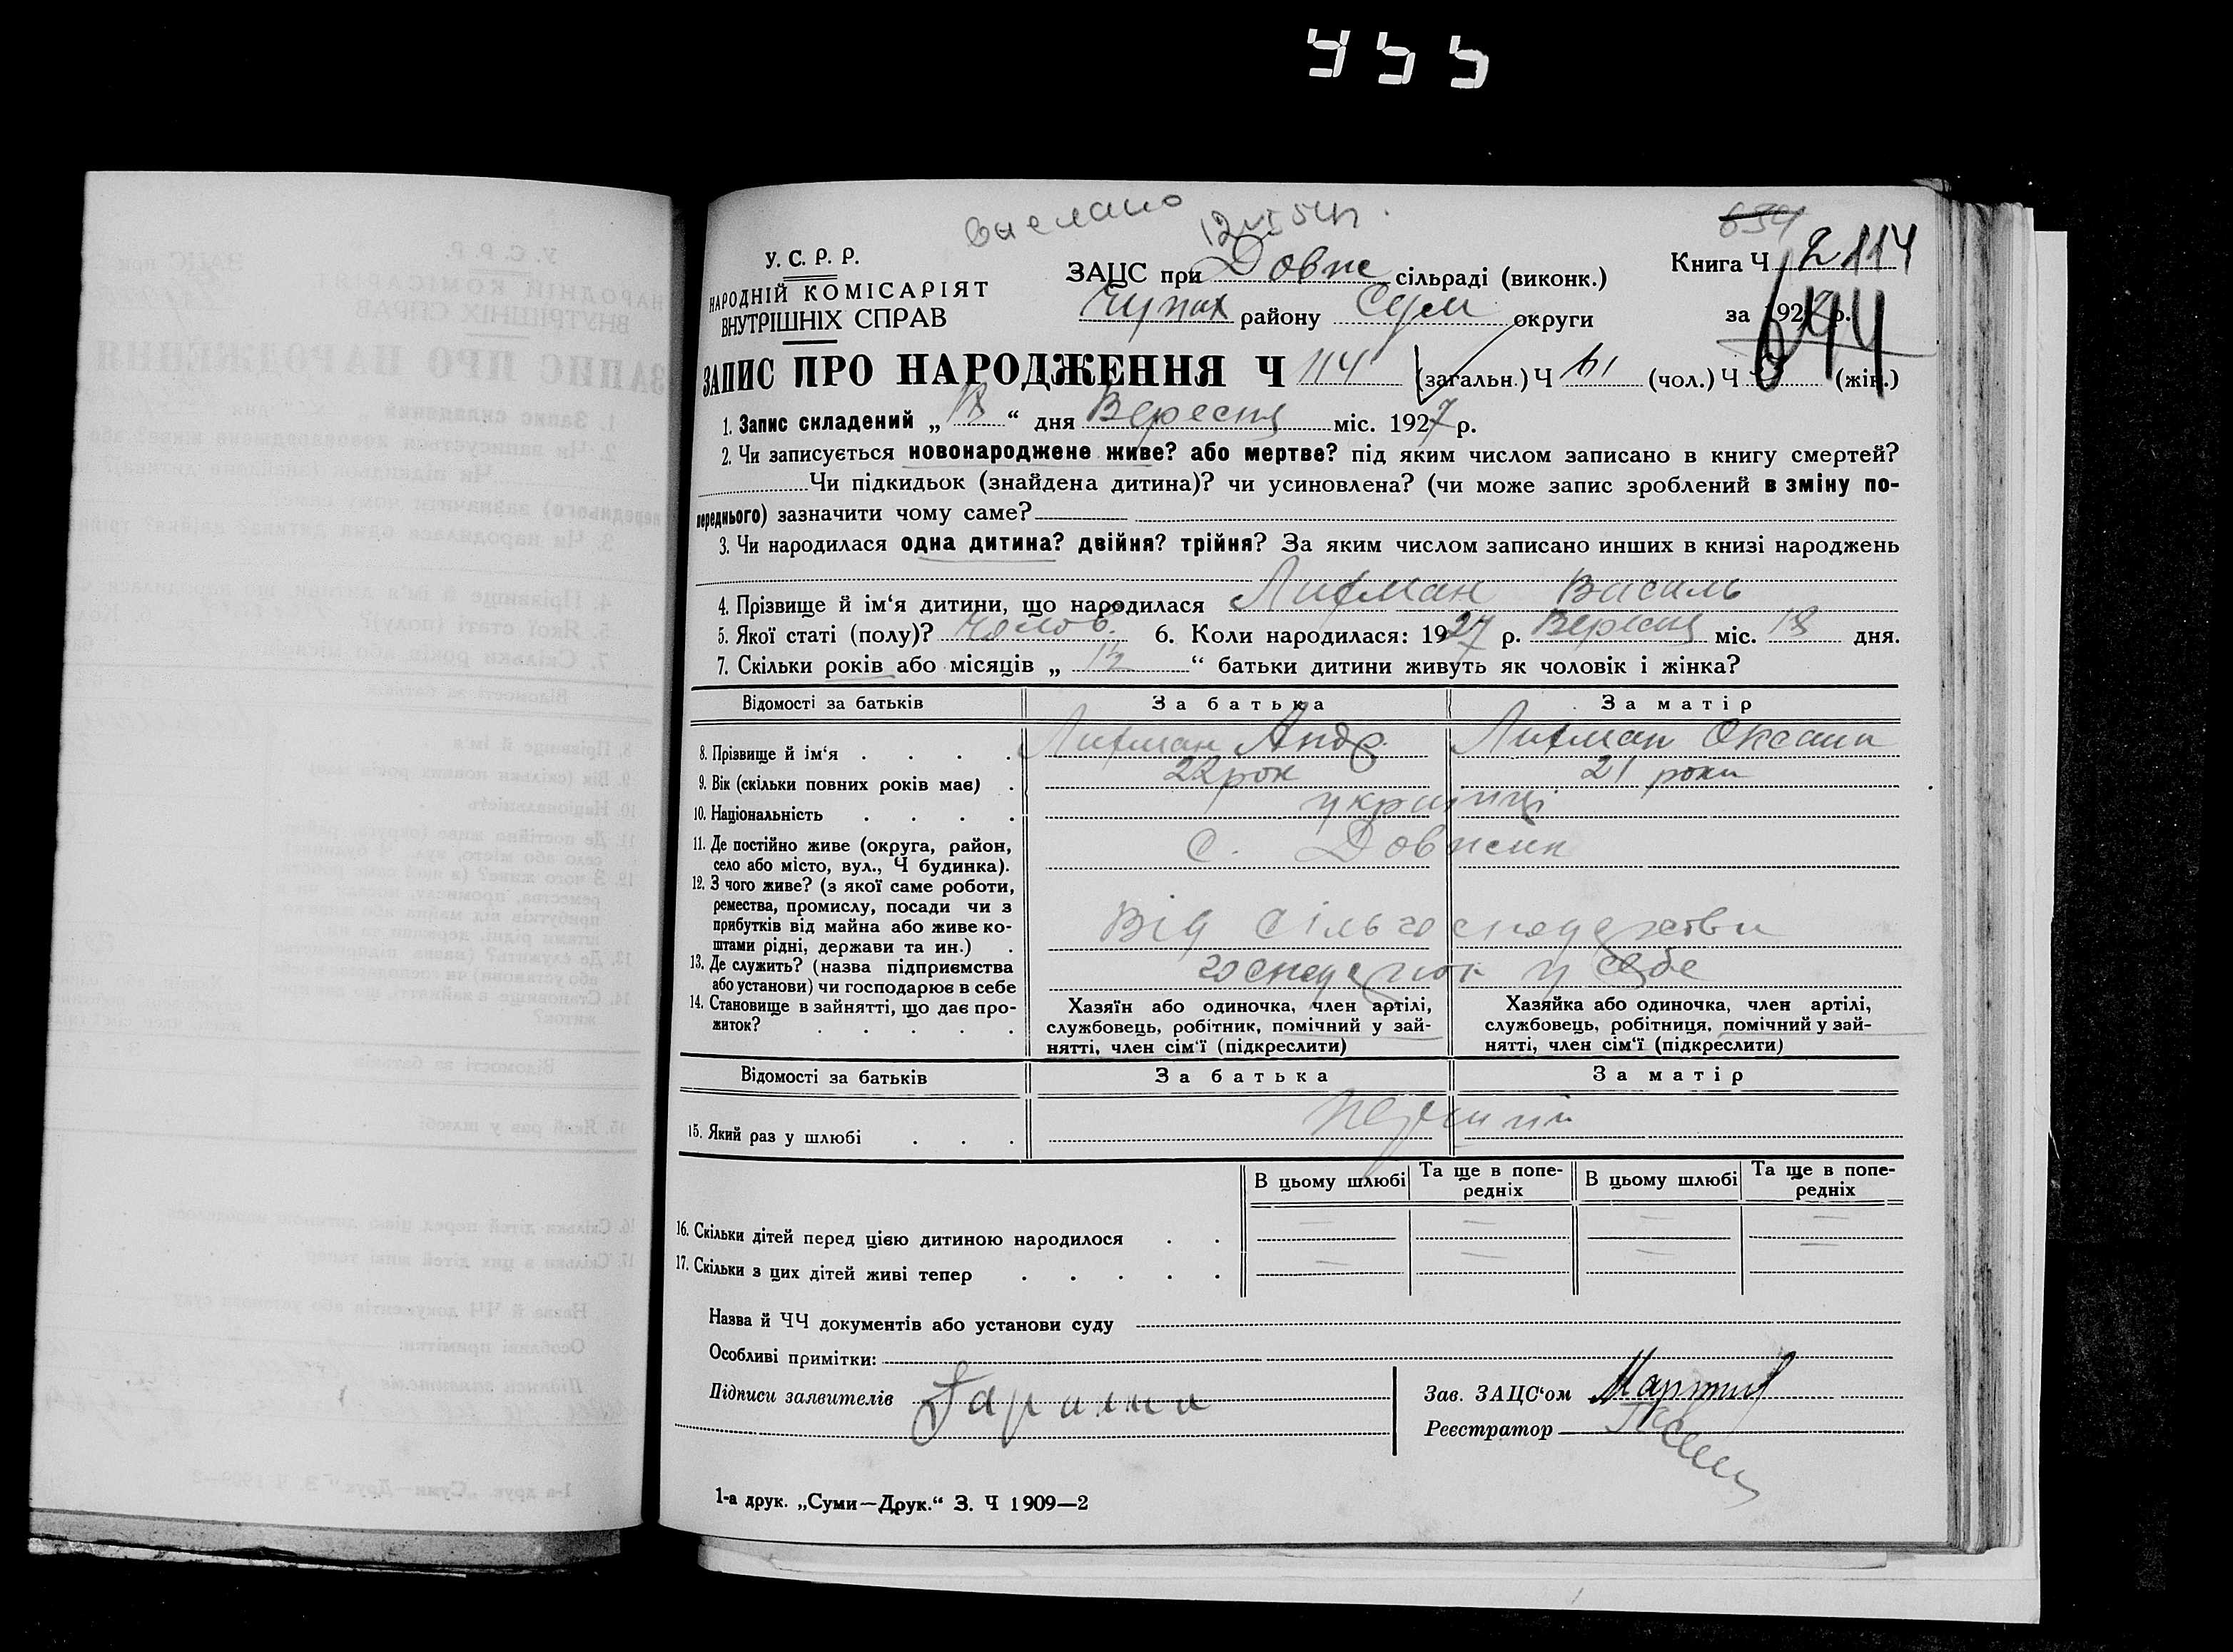 У. С. Р. Р.
НАРОДНІЙ КОМІСАРІЯТ
ВНУТРІШНІХ СПРАВ
634
ЗАЦС при Довже сільраді (виконк.)
Чупах району Сум округи
Книга Ч 2 114
за 1927 р.
644
ЗАПИС ПРО НАРОДЖЕННЯ Ч 114 (загальн.) Ч 61 (чол.) Ч (жін.)
1. Запис складений „ 18 “ дня Вересня міс. 1927 р.
2. Чи записується новонароджене живе? або мертве? під яким числом записано в книгу смертей?
Чи підкидьок (знайдена дитина)? чи усиновлена? (чи може запис зроблений в зміну по-
переднього) зазначити чому саме?
3. Чи народилася одна дитина? двійня? трійня? За яким числом записано инших в книзі народжень
4. Прізвище й ім‘я дитини, що народилася Лифман Василь
5. Якої статі (полу)? Чолов. 6. Коли народилася: 1927 р. Вересня міс. 18 дня.
7. Скільки років або місяців „ 1½ “ батьки дитини живуть як чоловік і жінка?
Відомості за батьків За батька За матір
8. Прізвище й ім‘я Лифман Андр. Лифман Оксана
9. Вік (скільки повних років має) 22 рок 21 роки
10. Національність українці
11. Де постійно живе (округа, район,
село або місто, вул., Ч будинка). с. Довжик
12. З чого живе? (з якої саме роботи,
ремества, промислу, посади чи з
прибутків від майна або живе ко-
штами рідні, держави та ин.) Від сільгосподарства
13. Де служить? (назва підприємства
або установи) чи господарює в себе у себе
14. Становище в зайнятті, що дає про-
житок?
Хазяїн або одиночка, член артілі,
службовець, робітник, помічний у зай-
нятті, член сім‘ї (підкреслити)
Хазяйка або одиночка, член артілі,
службовець, робітниця, помічний у зай-
нятті, член сім‘ї (підкреслити)
Відомості за батьків За батька За матір
15. Який раз у шлюбі перший
В цьому шлюбі Та ще в попе-редніх В цьому шлюбі Та ще в попе-редніх
16. Скільки дітей перед цією дитиною народилося — — — —
17. Скільки з цих дітей живі тепер — — — —
Назва й ЧЧ документів або установи суду
Особливі примітки:
Підписи заявителів
Зав. ЗАЦС‘ом
Реєстратор
1-а друк. „Суми—Друк.“ З. Ч 1909—2